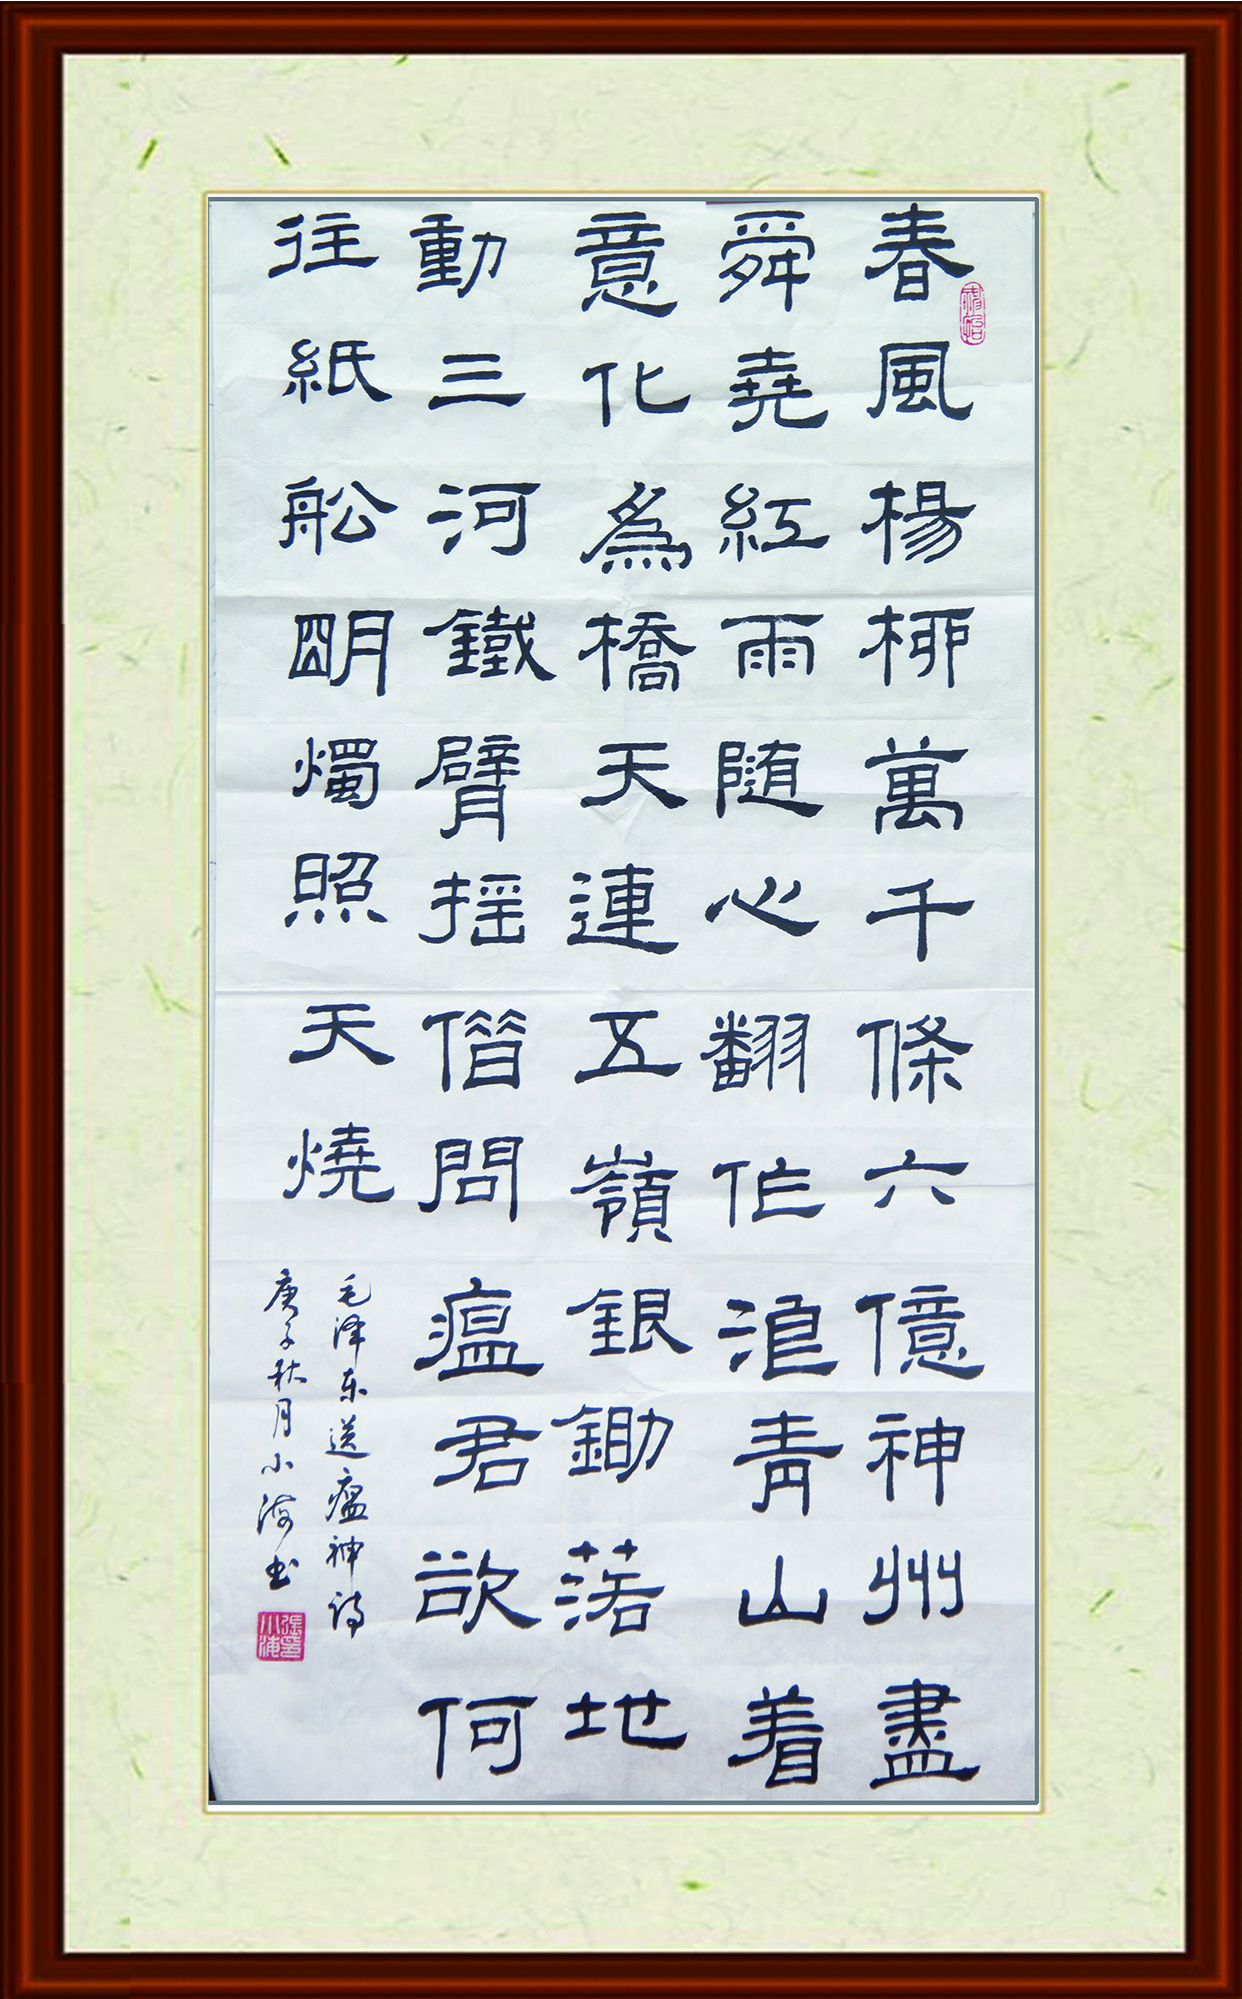 春風楊柳萬千條六億神州盡
舜堯紅雨随心翻作浪青山着
意化為橋天連五嶺銀鋤落地
動三河鐵臂摇借問瘟君欲何
往紙船明燭照天燒
毛泽东送瘟神诗
庚子秋月小海书
張小海印